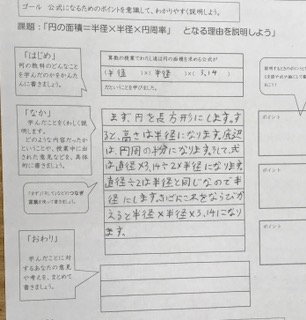 ゴール 公式になるためのポイントを意識して、わかりやすく説明しよう。
課題:「円の面積＝半径×半径×円周率」 となる理由を説明しよう」
「はじめ」
何の教材のどんなことを学んだのかをかんたんに書きましょう。
算数の授業でわたし達は円の面積を求める公式が
(半径)×(半径)×(3.14)
だということを学びました。
「なか」
学んだことをくわしく説明します。
どのような内容だったかということや、授業中に出された意見などを、具体的に書きましょう。
まず、円を長方形にします。す
ると、高さは半径になります。底辺
は、円周の半分になります。そして、式
は直径×3.14÷2×半径になります
直径÷2は半径と同じなので半
径にします。さいごに式をならびか
えると半径×半径×3.14になり
ます。
「おわり」
学んだことに対するあなたの意見や考えを、まとめて書きましょう。
ポイント
ポイント
ポイント